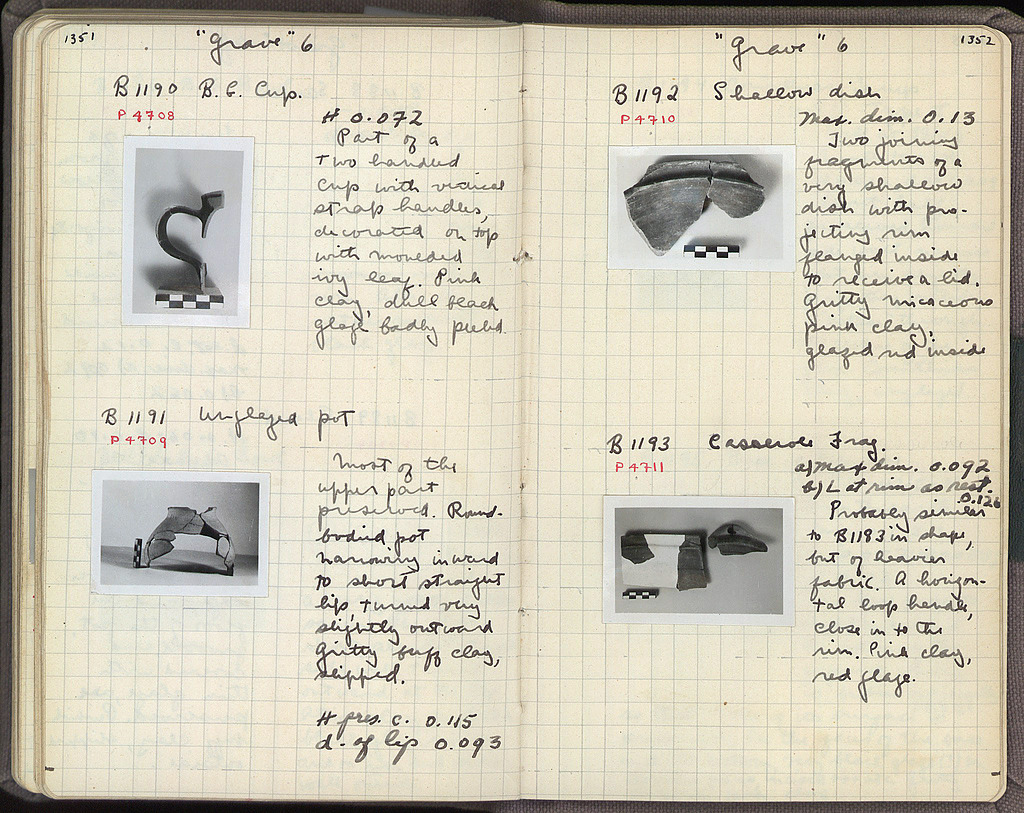 1351
"Grave" 6
B 1190 B.G. Cup.
P 4708
H 0.072
Part of a
two handled
cup with vertical
strap handles,
decorated on top
with moulded
ivy leaf. Pink
clay, dull black
glaze badly peeled.
B 1191 Unglazed pot
P 4709
Most of the
upper part
preserved. Round-
bodied pot
narrowing inward
to short straight
lip, turned very
slightly outward
Gritty buff clay,
slipped.
H pres. c. 0.115
d. of lip 0.093
1352
"Grave" 6
B 1192 Shallow dish
P 4710
Max. dim. 0.13
Two joining
fragments of a
very shallow
dish with pro-
jecting rim
flanged inside
to receive a lid.
Gritty micaceous
pink clay,
glazed red inside
B 1193 Casserole Frag.
P 4711
a) Max dim. 0.092
b) L at rim as rest.
0.126
Probably similar
to B1193 in shape,
but of heavier
fabric. A horizon-
tal loop handle,
close in to the
rim. Pink clay,
red glaze.